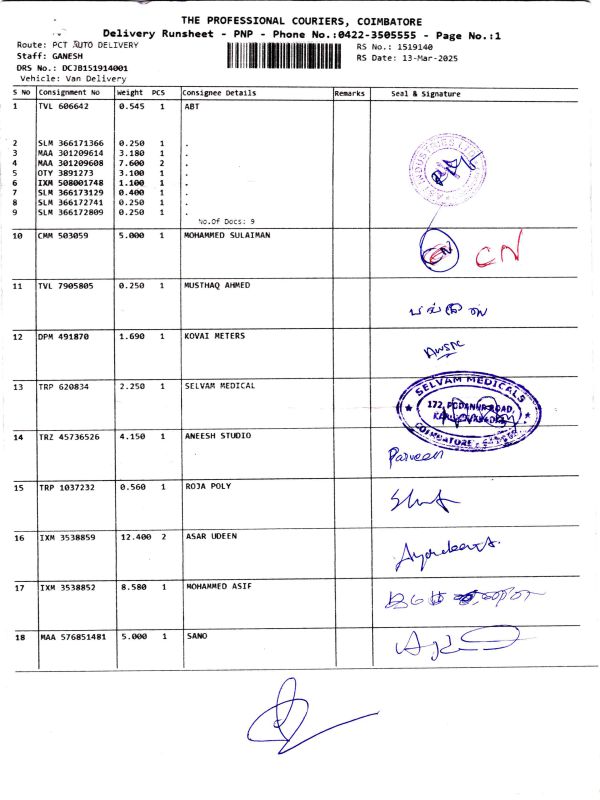 THE PROFESSIONAL COURIERS, COIMBATORE
Delivery Runsheet - PNP - Phone No.:0422-3505555 - Page No.:1
Route: PCT AUTO DELIVERY
RS No.: 1519140
Staff: GANESH
RS Date: 13-Mar-2025
DRS No.: DCJB151914001
Vehicle: Van Delivery
S No Consignment No Weight PCS Consignee Details Remarks Seal & Signature
1 TVL 606642 0.545 1 ABT
2 SLM 366171366 0.250 1 .
3 MAA 301209614 3.180 1 .
4 MAA 301209608 7.600 2 .
5 OTY 3891273 3.100 1 .
6 IXM 508001748 1.100 1 .
7 SLM 366173129 0.400 1 .
8 SLM 366172741 0.250 1 .
9 SLM 366172809 0.250 1 .
No.Of Docs: 9
10 CMM 503059 5.000 1 MOHAMMED SULAIMAN CN CN
11 TVL 7905805 0.250 1 MUSTHAQ AHMED
12 DPM 491870 1.690 1 KOVAI METERS
13 TRP 620834 2.250 1 SELVAM MEDICAL
SELVAM MEDICALS
172, PODANUR ROAD,
COIMBATORE
14 TRZ 45736526 4.150 1 ANEESH STUDIO
Parveen
15 TRP 1037232 0.560 1 ROJA POLY
16 IXM 3538859 12.400 2 ASAR UDEEN
17 IXM 3538852 8.580 1 MOHAMMED ASIF
18 MAA 576851481 5.000 1 SANO